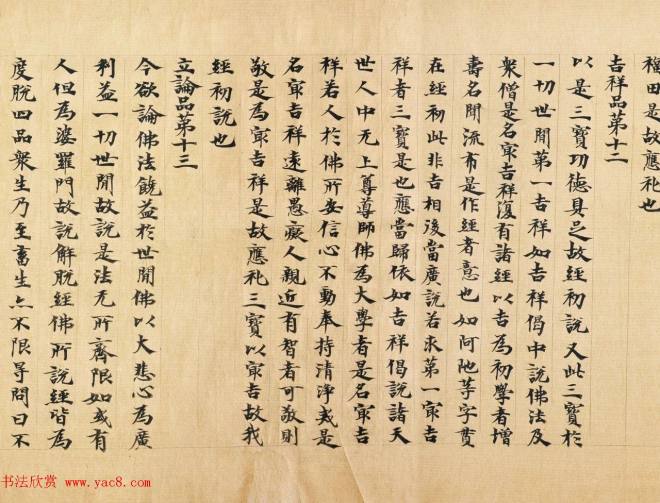 福田是故應礼也
吉祥品第十二
以是三寶功德具足故經初說又此三寶於
一切世間第一吉祥如吉祥偈中說佛法及
衆僧是名㝡吉祥復有諸經以吉為初學者增
壽名聞流布是作經者意也如阿他等字貫
在經初此非吉相後當廣說若求第一㝡吉
祥者三寶是也應當歸依如吉祥偈說諸天
世人中无上尊導師佛為大學者是名㝡吉
祥若人於佛所安信心不動奉持清淨戒是
名㝡吉祥遠離愚癡人親近有智者可敬則
敬是為㝡吉祥是故應礼三寶以㝡吉故我
經初說也
立論品第十三
今欲論佛法饒益於世間佛以大悲心為廣
利益一切世間故說是法无所齊限如或有
人但為婆羅門故說解脫經佛所說經皆為
度脫四品衆生乃至畜生亦不限㝵問曰不
书法欣赏 www.yac8.com